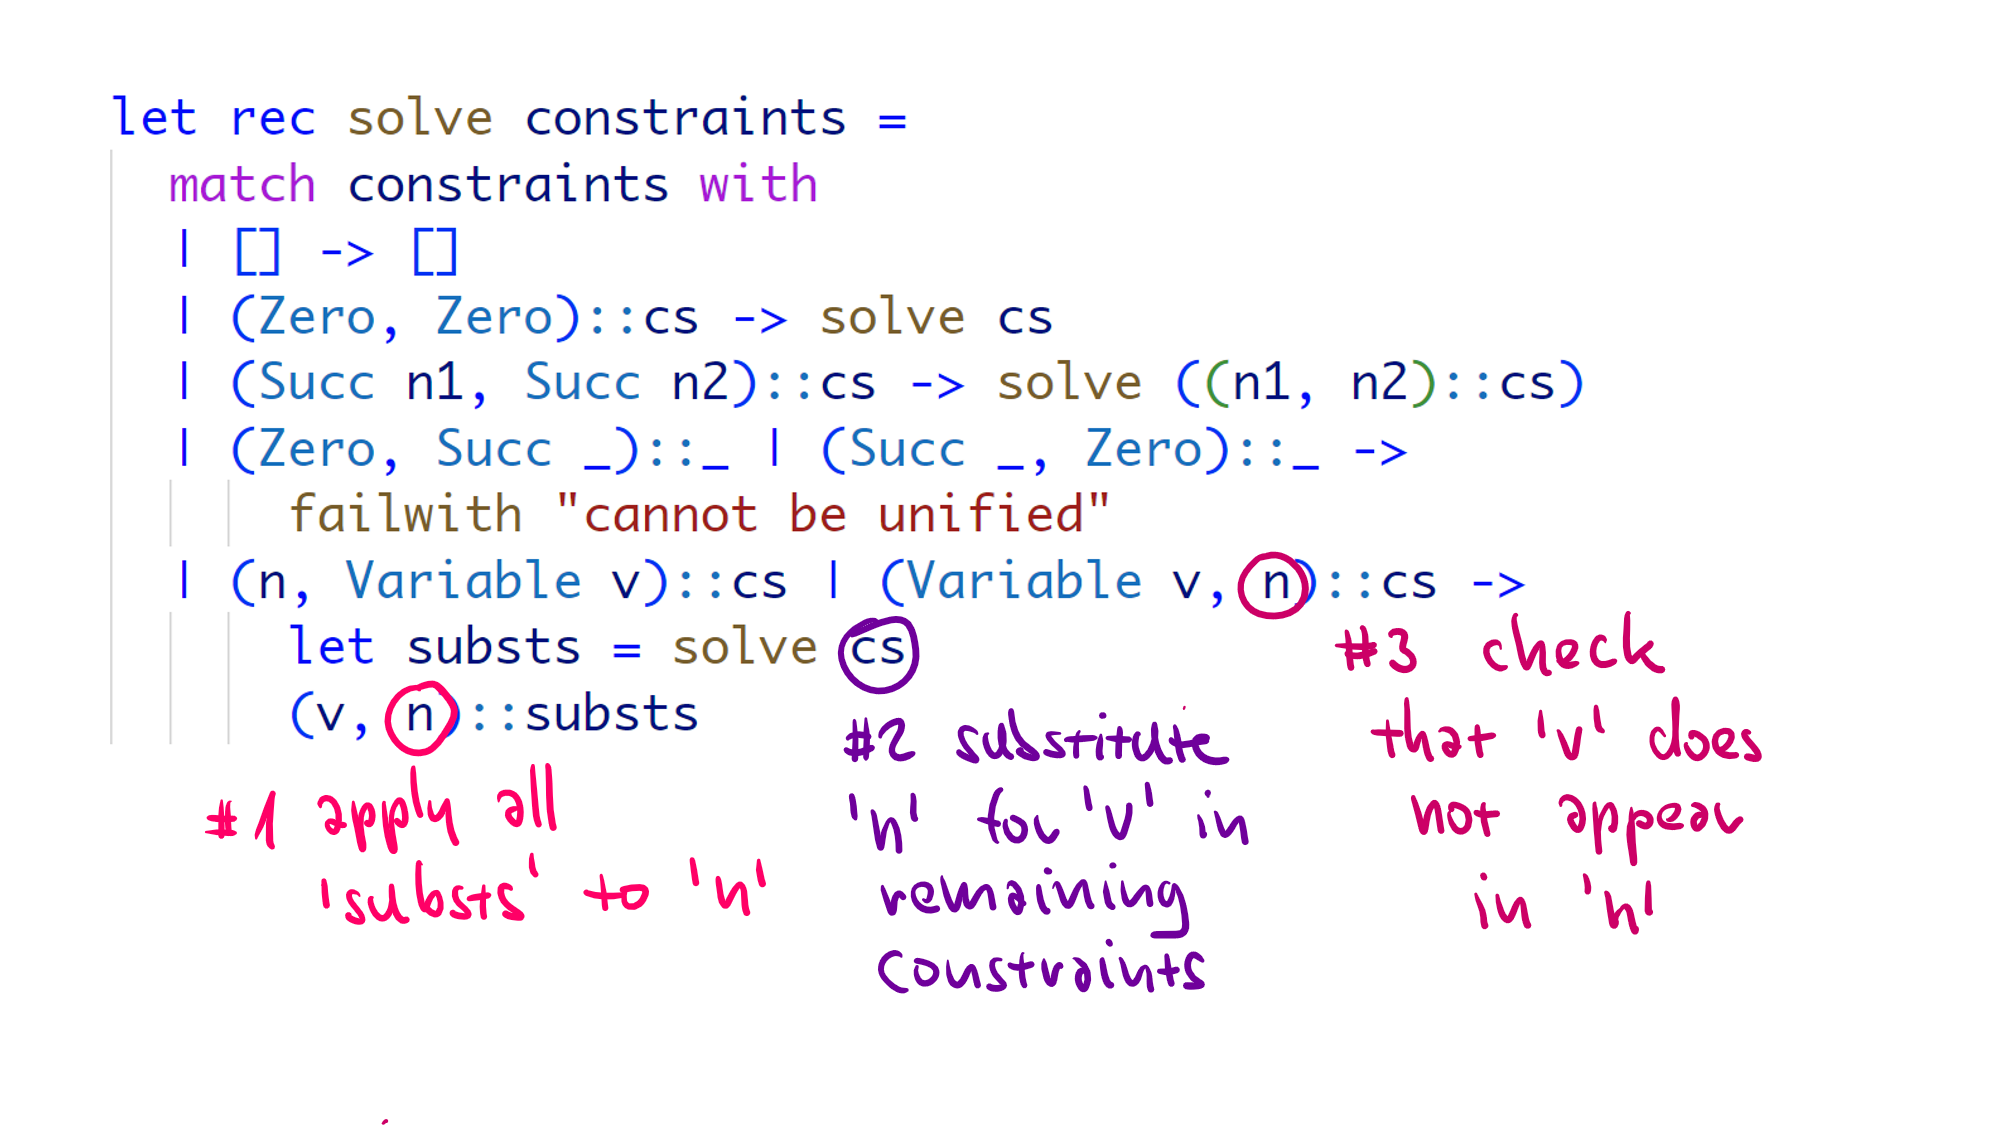 let rec solve constraints =
match constraints with
| [] -> []
| (Zero, Zero)::cs -> solve cs
| (Succ n1, Succ n2)::cs -> solve ((n1, n2)::cs)
| (Zero, Succ _)::_ | (Succ _, Zero)::_ ->
failwith "cannot be unified"
| (n, Variable v)::cs | (Variable v, n)::cs ->
let substs = solve cs
(v, n)::substs
#1 apply all
'substs' to 'n'
#2 substitute
'n' for 'v' in
remaining
constraints
#3 check
that 'v' does
not appear
in 'n'